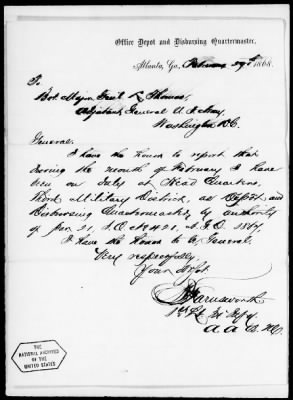 Office Depot and Disbursing Quartermaster.
Atlanta, Ga., February 29th 1868.
To
Bvt. Major Genl. L. Thomas,
Adjutant General U.S. Army,
Washington D.C.
General.
I have the honor to report that
during the month of February I have
been on duty at Head Quarters,
Third Military District, as Depot and
Disbursing Quartermaster, by authority
of
I have the Honor to be, General,
Very respectfully
Your Obt.
Farnsworth
1st Lt.
A.A.Q.M.
THE
NATIONAL ARCHIVES
OF THE
UNITED STATES